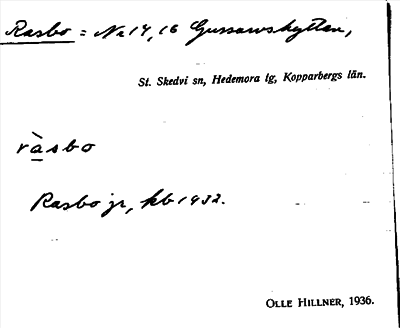 Rasbo = No 14, 16 Gussarvshyttan,
St. Skedvi sn, Hedemora tg, Kopparbergs län.
ràsbo
Rasbo jr, kb 1932.
OLLE HILLNER, 1936.